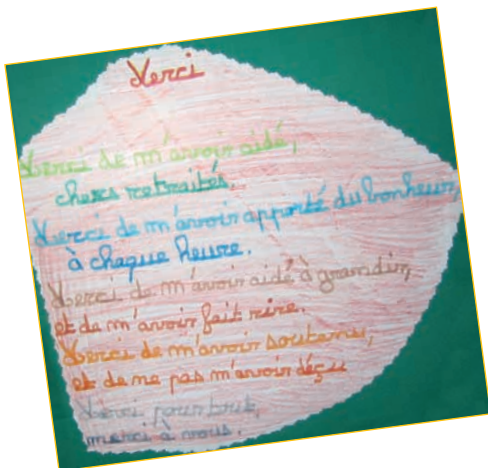 Merci
Merci de m'avoir aidé,
chers retraités.
Merci de m'avoir apporté du bonheur,
à chaque heure.
Merci de m'avoir aidé à grandir,
et de m'avoir fait rire.
Merci de m'avoir soutenu,
et de ne pas m'avoir déçu
Merci pour tout,
merci à vous.